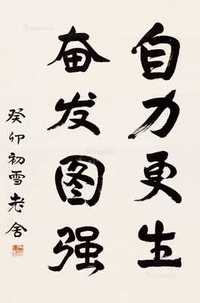 自力更生
奋发图强
癸卯初雪老舍